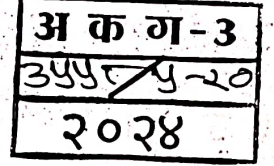 अ क ग-३
३५५८/५-२०
२०२४